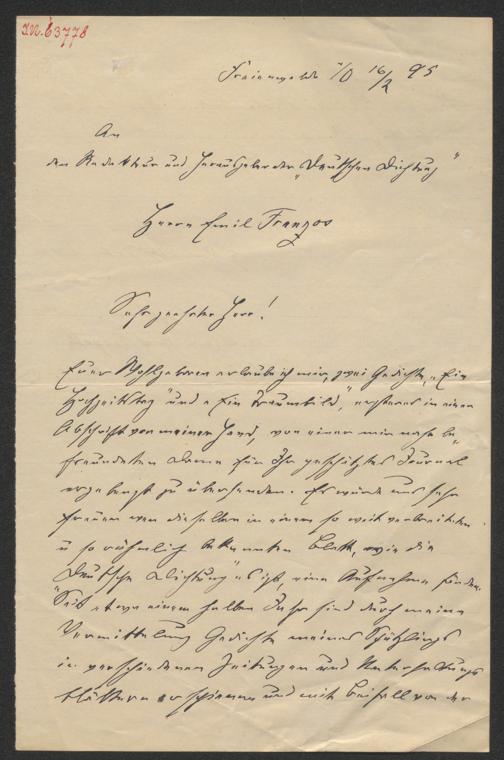 I.N. 63778
Freienwalde a/O 16/2 95
An
den Redakteur und Herausgeber der „Deutschen Dichtung"
Herrn Emil Franzos
Sehr geehrter Herr!
Euer Wohlgeboren erlaube ich mir, zwei Gedichte, „Ein
Hochzeitstag" und „Ein Traumbild", ersteres in einer
Abschrift von meiner Hand, von einer mir nahe be„
freundeten Dame für Ihr geschätztes Journal
ergebenst zu übersenden. Es würde uns sehr
freuen wen dieselben in einem so weit verbreiteten
u so rühmlich bekannten Blatt, wie die
„Deutsche Dichtung" es ist, eine Aufnahme fänden.
Seit etwa einem halben Jahr sind durch meine
Vermittelung Gedichte meines Schützlings
in verschiedenen Zeitungen und Unterhaltungs
blättern erschienen und mit Beifall von der